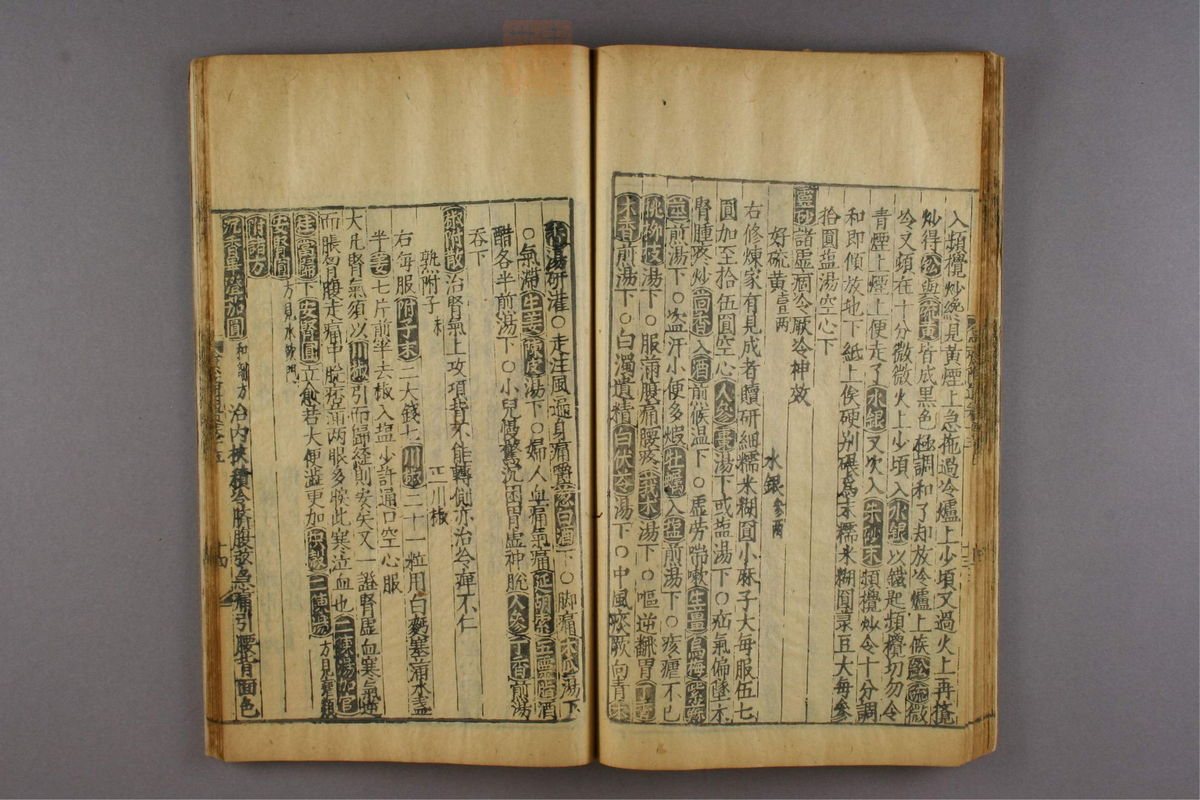 入頻攪炒纔見黃煙上急拖過冷爐上少頃又過火上再攪
炒得鈆與硫東皆成黑色極調和了却放冷爐上候鈆硫微
冷又頻在十分微微火上少頃入水銀以鐵匙頻攪切勿令
青煙上煙上便走了水銀又次入朱砂末頻攪炒令十分調
和即傾放地下紙上候硬別碾爲末糯米糊圓菉豆大每參
拾圓盐湯空心下
靈砂諸虚痼冷厥冷神效
好硫黄壹兩 水銀參兩
右修煉家有見成者贖研細糯米糊圓小麻子大每服伍七
圓加至拾伍圓空心人參棗湯下或盐湯下○疝氣偏墜木
腎腫疼炒茴香入酒煎候温下○虚劳喘嗽生薑烏梅紫蘇
煎湯下○盗汗小便多煅牡蠣入盐煎湯下○痎瘧不已
桃柳枝湯下○服滿腹痛腰疼莪朮湯下○嘔逆翻胃丁香
木香煎湯下○白濁遺精白伏苓湯下○中風痰厥向青
湯研灌○走注風遍身痛嚼葱白酒下○脚痛木瓜湯下
○氣滯生姜陳皮湯下○婦人血痛氣痛延胡索五靈脂酒
醋各半煎湯下○小兒偶驚沉困胃虚神脫人參丁香煎湯
吞下
椒附散治腎氣上攻項背不能轉側亦治冷痹不仁
熟附子末 川椒
右每服附子末二大錢七川椒二十一粒用白麪塞滿水盞
半姜七片煎半去椒入盐少許通口空心服
大凡腎氣須以川椒引而歸經則安矣又一證腎虚血寒氣逆
而脹胷腹走痛串脇疼滿两眼多䁾此寒泣血也二陳湯加官
桂當歸下安腎圓立愈若大便澁更加二陳湯方見痰類
安腎圓方見水飲門
附諸方
沉香蓽澄茄圓和劑方 治内挾積冷臍腹弦急痛引腰背面色